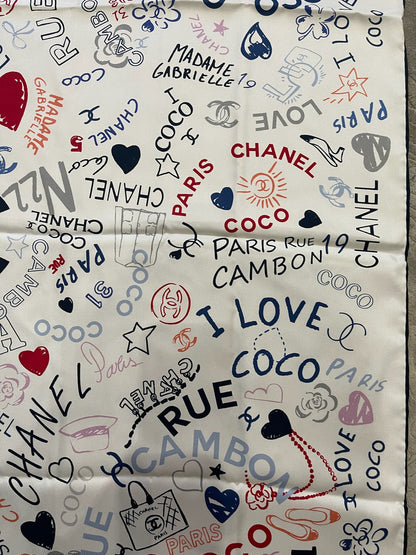 31
RUE
I LOVE
COCO
CHANEL
MADAME
GABRIELLE 19
COCO
MADAME
GABRIELLE
CHANEL
5
I
COCO
LOVE
PARIS
Coco
N22
CHANEL
PARIS
CHANEL
COCO
CHANEL
I
COCO
PARIS
RUE
CAMBON
31
COCO
COCO
PARIS RUE 19
CAMBON
CHANEL
COCO
I LOVE
COCO
PARIS
Paris
CHANEL
CHANEL
RUE
CAMBON
COCO
I LOVE
COCO
RUE
CHANEL
PARIS
PARIS
COCO